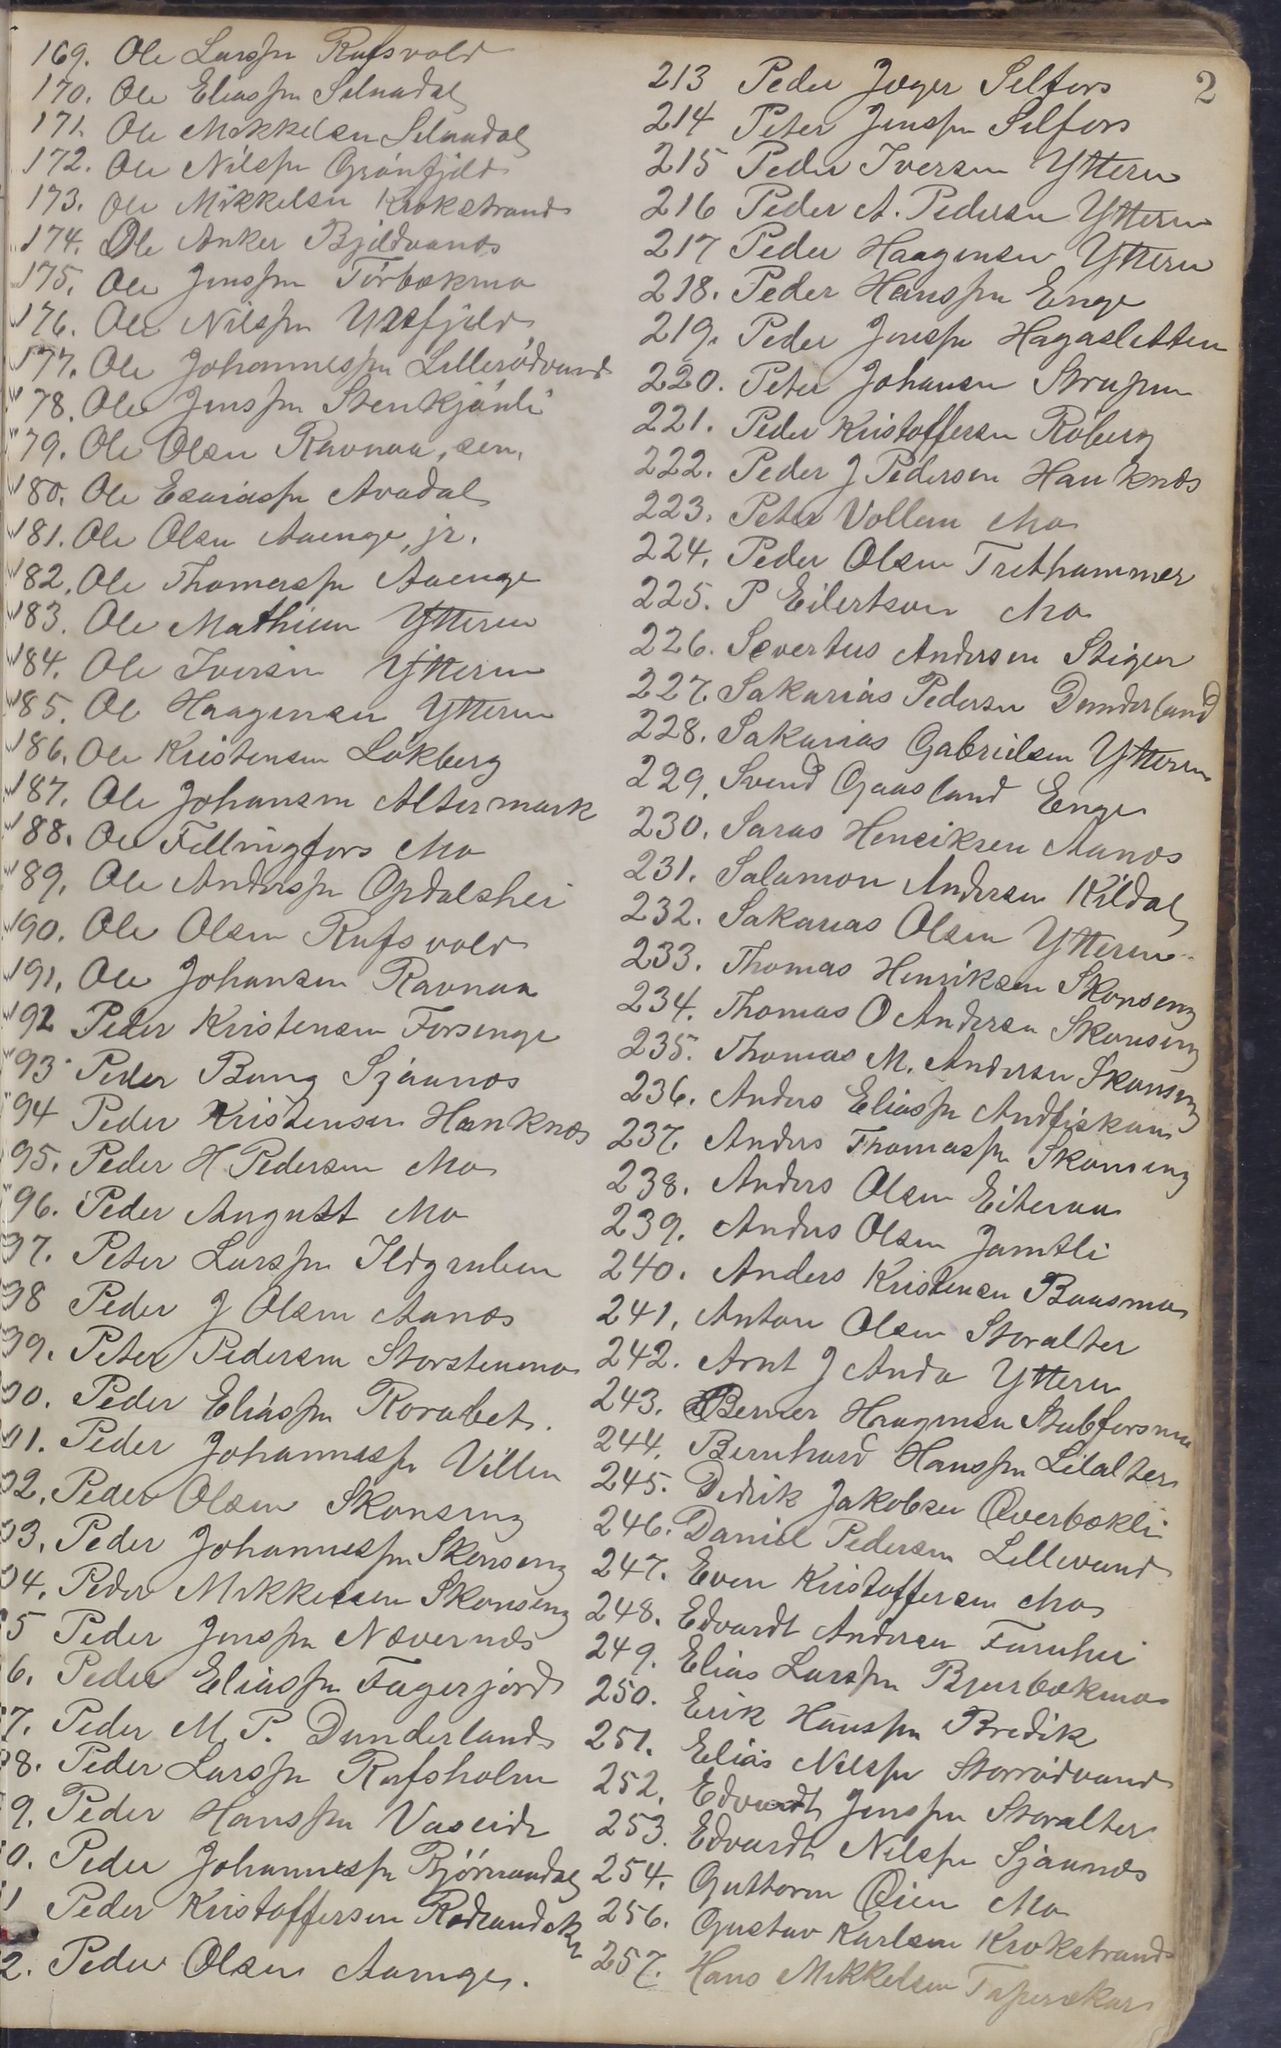 2
169. Ole Larssen Rufsvold
170. Ole Eliassen Selnadal
171. Ole Mikkelsen Selnadal
172. Ole Nilssen Grönfjeld
173. Ole Mikkelsen Krokstrand
174. Ole Anker Bjeldvanes
175. Ole Jenssen Törbækmo
176. Ole Nilssen
177. Ole Johannessen Lillerödvand
178. Ole Jenssen Stenkjönli
179. Ole Olsen Ravnaa, sen.
180. Ole Esaiassen Avadal
181. Ole Olsen Aaenge, jr.
182. Ole Thomassen Aaenge
183. Ole Mathisen Ytteren
184. Ole Iversen Ytteren
185. Ole Haagensen Ytteren
186. Ole Kristensen Lökberg
187. Ole Johansen Altermark
188. Ole Fellingfors Mo
189. Ole Anderssen Opdalshei
190. Ole Olsen Rufsvold
191. Ole Johansen Ravnaa
192 Peder Kristensen Forsenge
93 Peder Bang Sjaanes
94 Peder Kristensen Hauknes
95. Peder H Pedersen Mo
96. Peder August Mo
97. Peter Larssen Ildgruben
98 Peder J Olsen Aanes
99. Peter Pedersen Storstenmo
00. Peder Eliassen Rorabet.
01. Peder Johannessen Villen
02. Peder Olsen Skonseng
03. Peder Johannessen Skonseng
04. Peder Mikkelsen Skonseng
5 Peder Jenssen Nævernes
6. Peder Eliassen Fagerjord
7. Peder M. P. Dunderland
8. Peder Larssen Rufsholm
9. Peder Hanssen Vaseid
0. Peder Johannessen Björnaadal
1 Peder Kristoffersen
2. Peder Olsen Aaenge.
213 Peder Jæger Selfors
214 Peter Jenssen Selfors
215 Peder Iversen Ytteren
216 Peder A. Pedersen Ytteren
217 Peder Haagensen Ytteren
218. Peder Hanssen Enge
219. Peder Jenssen Hagasletten
220. Peter Johansen Strupen
221. Peder Kristoffersen Röberg
222. Peder J Pedersen Hauknes
223. Peter Vollan Mo
224. Peder Olsen Trethammer
225. P Eilertsen Mo
226. Severtus Andersen Stigen
227. Sakarias Pedersen Dunderland
228. Sakarias Gabrielsen Ytteren
229. Svend Gaasland Enge
230. Saras Henriksen Aanes
231. Salamon Andersen Kildal
232. Sakarias Olsen Ytteren
233. Thomas Henriksen Skonseng
234. Thomas O Andersen Skonseng
235. Thomas M. Andersen Skonseng
236. Anders Eliassen Andfiskaa
237. Anders Thomassen Skonseng
238. Anders Olsen Eiteraa
239. Anders Olsen Jamtli
240. Anders Kristensen Baasmo
241. Anton Olsen Storalter
242. Arnt J Anda Ytteren
243. Berner Haagensen Stubforsmo
244. Bernhard Hanssen Lilalter
245. Didrik Jakobsen Överbækli
246. Daniel Pedersen Lillevand
247. Even Kristoffersen Mo
248. Edvardt Andersen Furuhei
249. Elias Larssen Bjurbækmo
250. Erik Hanssen Bredik
251. Elias Nilssen Storrödvand
252. Edvardt Jenssen Storalter
253. Edvardt Nilssen Sjaanes
254. Guttorm Öien Mo
256. Gustav Karlsen Krokstrand
257. Hans Mikkelsen Tapeskar